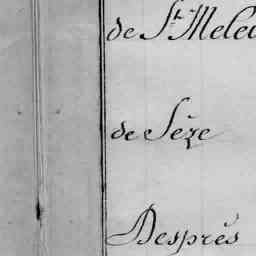 de St. Mele
de Sèze
Desprès